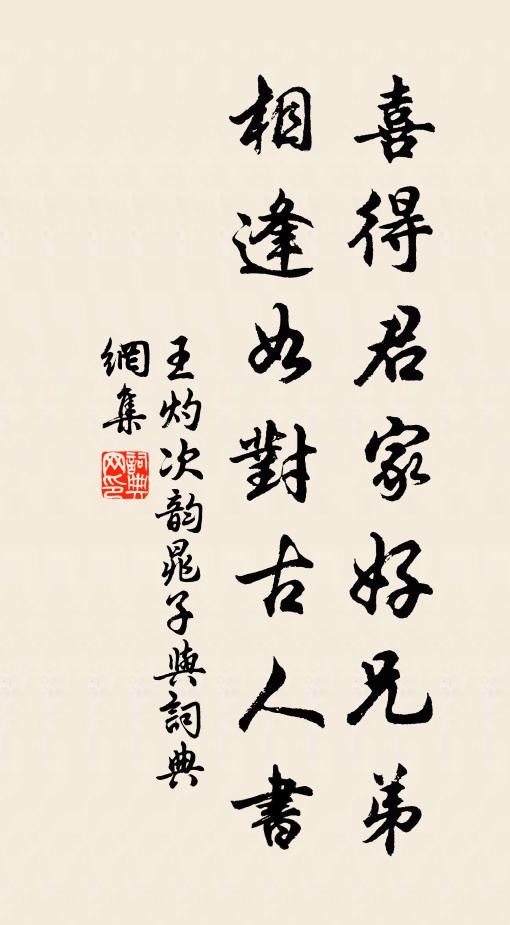 喜得君家好兄弟
相逢如對古人書
王灼次韵晁子與詞典
網集
詞典網印